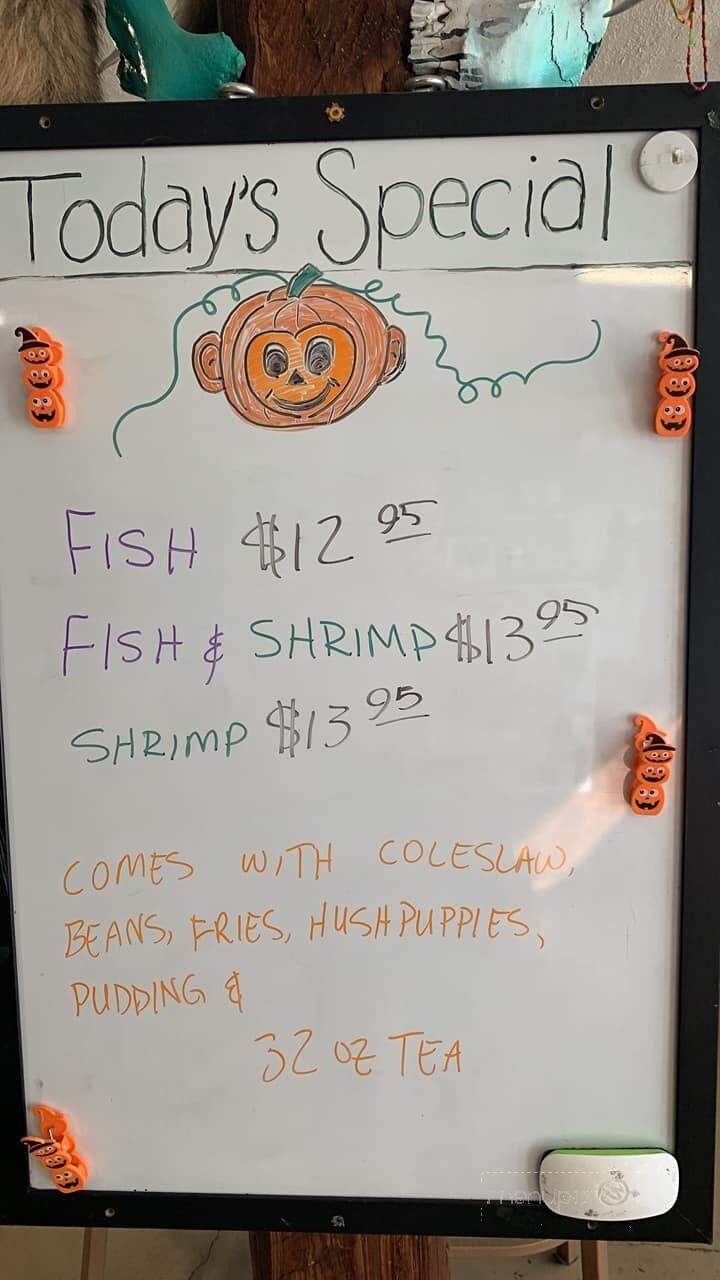 Today's Special
FISH $12 95
FISH & SHRIMP $13 95
SHRIMP $13 95
COMES WITH COLESLAW,
BEANS, FRIES, HUSHPUPPIES,
PUDDING &
32 OZ TEA